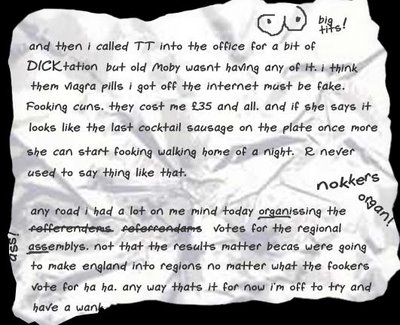 big
tits!
and then i called TT into the office for a bit of
DICKtation but old Moby wasnt having any of it. i think
them viagra pills i got off the internet must be fake.
Fooking cuns. they cost me £35 and all. and if she says it
looks like the last cocktail sausage on the plate once more
she can start fooking walking home of a night. R never
used to say thing like that.
nokkers
organ!
any road i had a lot on me mind today organissing the
refferendems referrendams votes for the regional
ass!
assemblys. not that the results matter becas were going
to make england into regions no matter what the fookers
vote for ha ha. any way thats it for now i'm off to try and
have a wank